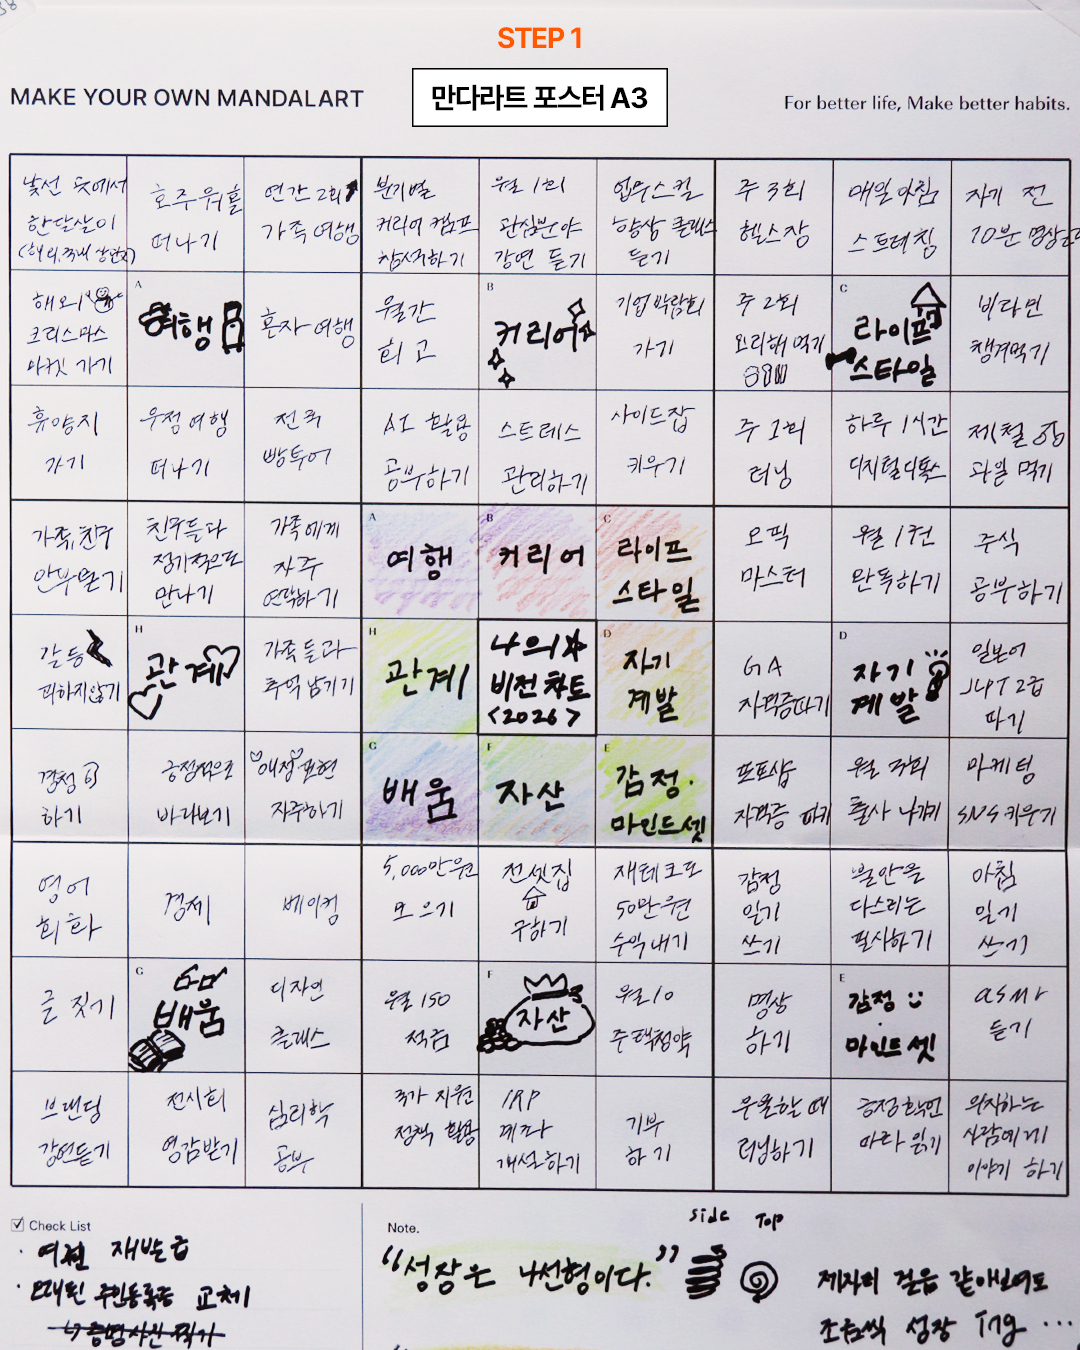 STEP 1
MAKE YOUR OWN MANDALART
만다라트 포스터 A3
For better life, Make better habits.
낯선 곳에서
한달살이
호주 워홀
떠나기
연간 2회
가족여행
분기별
커리어 캠프
참석하기
월 1회
관심분야
강연 듣기
업무스킬
향상 클래스
듣기
주 3회
헬스장
매일 아침
스트레칭
자기 전
10분 명상
해외
크리스마스
마켓 가기
A
여행
혼자 여행
월간
회고
B
커리어
기업 박람회
가기
주 2회
요리해 먹기
C
라이프
스타일
비타민
챙겨먹기
휴양지
가기
우정 여행
떠나기
전국
빵투어
AI 활용
공부하기
스트레스
관리하기
사이드잡
키우기
주 1회
러닝
하루 1시간
디지털디톡스
제철
과일 먹기
가족, 친구
안부묻기
친구들과
정기적으로
만나기
가족에게
자주
연락하기
A
여행
B
커리어
C
라이프
스타일
오픽
마스터
월 1권
완독하기
주식
공부하기
갈등
피하지않기
H
관계
가족들과
추억 남기기
H
관계
나의
비전 차트
<2026>
D
자기
계발
GA
자격증따기
D
자기
계발
일본어
JLPT 2급
따기
경청
하기
긍정적으로
바라보기
애정표현
자주하기
G
배움
F
자산
E
감정·
마인드셋
포토샵
자격증 따기
월 2회
출사 나가기
마케팅
SNS 키우기
영어
회화
경제
베이킹
5,000만원
모으기
전셋집
구하기
재테크로
50만원
수익내기
감정
일기
쓰기
불안을
다스리는
필사하기
아침
일기
쓰기
글 짓기
G
배움
디자인
클래스
월 150
적금
F
자산
월 10
주택청약
명상
하기
E
감정
·
마인드셋
asmr
듣기
브랜딩
강연듣기
전시회
영감받기
심리학
공부
국가 지원
정책 활용
IRP
계좌
개설하기
기부
하기
우울할 때
러닝하기
긍정확언
따라 읽기
의지하는
사람에게
이야기 하기
Check List
· 여권 재발급
· 오래된 주민등록증 교체
↳ 증명사진 찍기
Note.
"성장은 나선형이다."
side Top
제자리 걸음 같아보여도
조금씩 성장 ing ...